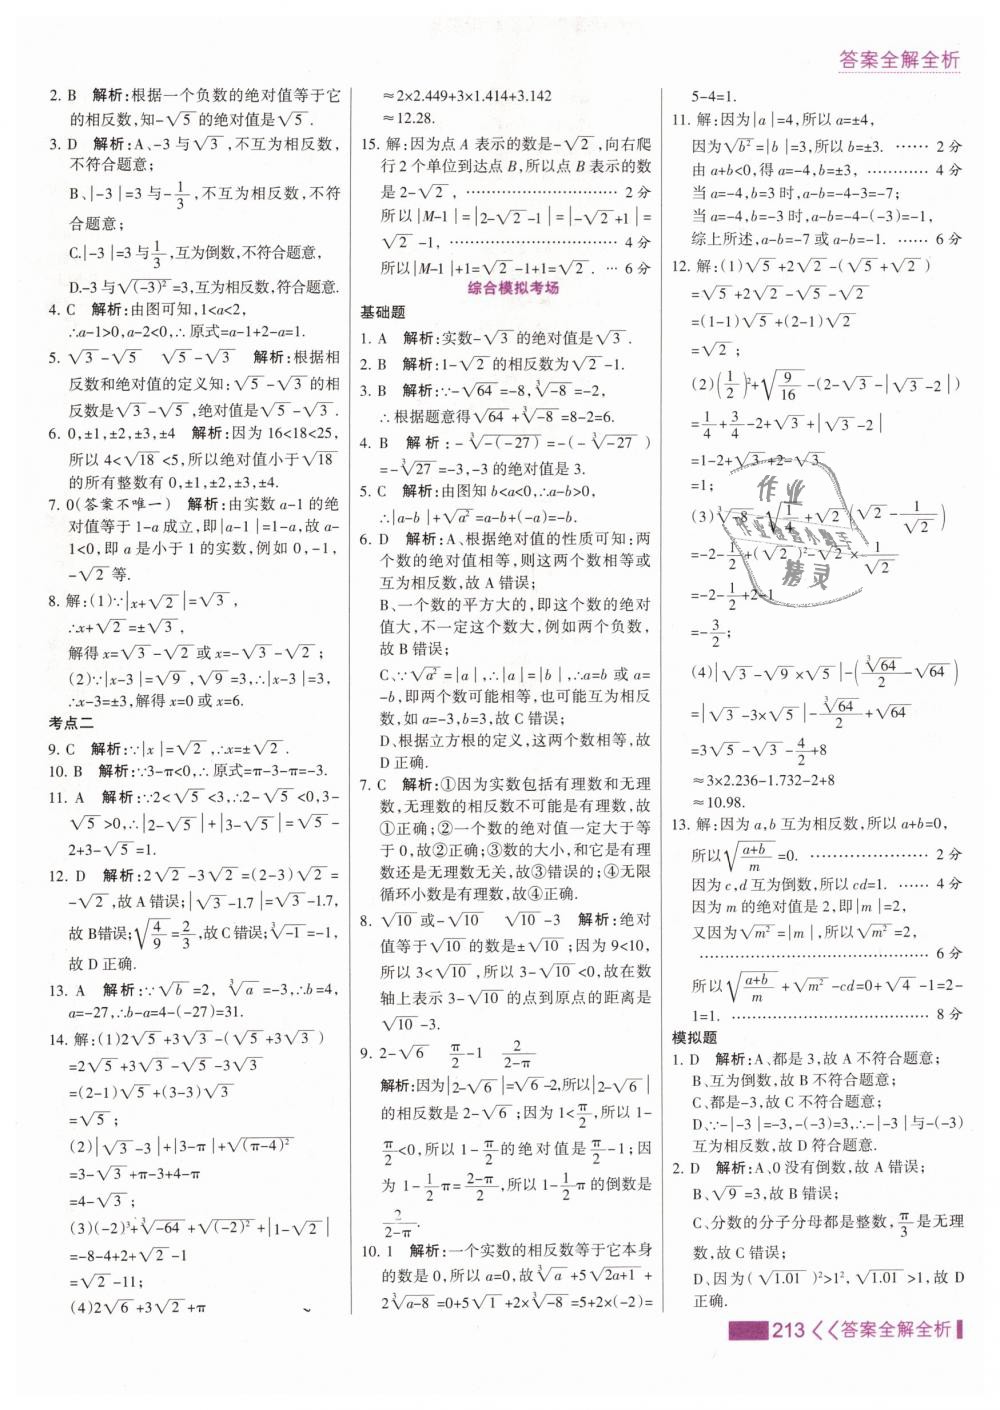 答案全解全析
2. B 解析:根据一个负数的绝对值等于它
的相反数,知-√5的绝对值是√5.
3. D 解析:A、-3与√3,不互为相反数,
不符合题意;
B、|-3|=3与-1/3,不互为相反数,不符
合题意;
C.|-3|=3与1/3,互为倒数,不符合题意,
D.-3与√(-3)²=3,互为相反数,符合题意.
4. C 解析:由图可知,1<a<2,
∴a-1>0,a-2<0,∴原式=a-1+2-a=1.
5. √3-√5 √5-√3 解析:根据相
反数和绝对值的定义知:√5-√3的相
反数是√3-√5,绝对值是√5-√3.
6. 0,±1,±2,±3,±4 解析:因为16<18<25,
所以4<√18<5,所以绝对值小于√18
的所有整数有0,±1,±2,±3,±4.
7. 0(答案不唯一) 解析:由实数a-1的绝
对值等于1-a成立,即|a-1|=1-a,故a-
1<0,即a是小于1的实数,例如0,-1,
-√2等.
8. 解:(1)∵|x+√2|=√3,
∴x+√2=±√3,
解得x=√3-√2或x=-√3-√2;
(2)∵|x-3|=√9,√9=3,∴|x-3|=3,
∴x-3=±3,解得x=0或x=6.
考点二
9. C 解析:∵|x|=√2,∴x=±√2.
10. B 解析:∵3-π<0,∴原式=π-3-π=-3.
11. A 解析:∵2<√5<3,∴2-√5<0,3-
√5>0,∴|2-√5|+|3-√5|=√5-
2+3-√5=1.
12. D 解析:2√2-3√2=(2-3)√2=
-√2,故A错误;|√3-1.7|=√3-1.7,
故B错误;√(4/9)=2/3,故C错误;∛-1=-1,
故D正确.
13. A 解析:∵√b=2,∛a=-3,∴b=4,
a=-27,∴b-a=4-(-27)=31.
14. 解:(1)2√5+3√3-(√5+3√3)
=2√5+3√3-√5-3√3
=(2-1)√5+(3-3)√3
=√5;
(2)|√3-3|+|3-π|+√(π-4)²
=3-√3+π-3+4-π
=4-√3;
(3)(-2)³+∛-64+√(-2)²+|1-√2|
=-8-4+2+√2-1
=√2-11;
(4)2√6+3√2+π
≈2×2.449+3×1.414+3.142
≈12.28.
15. 解:因为点A表示的数是-√2,向右爬
行2个单位到达点B,所以点B表示的数
是2-√2, …………………… 2分
所以|M-1|=|2-√2-1|=|-√2+1|=
√2-1, …………………… 4分
所以|M-1|+1=√2-1+1=√2. … 6分
综合模拟考场
基础题
1. A 解析:实数-√3的绝对值是√3.
2. B 解析:1-√2的相反数为√2-1.
3. B 解析:∵-√64=-8,∛-8=-2,
∴根据题意得√64+∛-8=8-2=6.
4. B 解析:-∛-(-27)=-(-∛-27)
=-∛27=-3,-3的绝对值是3.
5. C 解析:由图知b<a<0,∴a-b>0,
∴|a-b|+√a²=a-b+(-a)=-b.
6. D 解析:A、根据绝对值的性质可知:两
个数的绝对值相等,则这两个数相等或
互为相反数,故A错误;
B、一个数的平方大的,即这个数的绝对
值大,不一定这个数大,例如两个负数,
故B错误;
C、∵√a²=|a|,∴|a|=|b|,∴a=b或a=
-b,即两个数可能相等,也可能互为相反
数,如a=-3,b=3,故C错误;
D、根据立方根的定义,这两个数相等,故
D正确.
7. C 解析:①因为实数包括有理数和无理
数,无理数的相反数不可能是有理数,故
①正确;②一个数的绝对值一定大于等
于0,故②正确;③数的大小,和它是有理
数还是无理数无关,故③错误的;④无限
循环小数是有理数,故④正确.
8. √10或-√10 √10-3 解析:绝对
值等于√10的数是±√10;因为9<10,
所以3<√10,所以3-√10<0,故在数
轴上表示3-√10的点到原点的距离是
√10-3.
9. 2-√6 π/2-1 2/(2-π)
解析:因为|2-√6|=√6-2,所以|2-√6|
的相反数是2-√6;因为1<π/2,所以1-
π/2<0,所以1-π/2的绝对值是π/2-1;因
为1-1/2π=(2-π)/2,所以1-1/2π的倒数是
2/(2-π).
10. 1 解析:一个实数的相反数等于它本身
的数是0,所以a=0,故∛a+5√2a+1+
2∛a-8=0+5√1+2×∛-8=5+2×(-2)=
5-4=1.
11. 解:因为|a|=4,所以a=±4,
因为√b²=|b|=3,所以b=±3. …… 2分
由a+b<0,得a=-4,b=±3, ………… 4分
当a=-4,b=3时,a-b=-4-3=-7;
当a=-4,b=-3时,a-b=-4-(-3)=-1,
综上所述,a-b=-7或a-b=-1. …… 6分
12. 解:(1)√5+2√2-(√5+√2)
=√5+2√2-√5-√2
=(1-1)√5+(2-1)√2
=√2;
(2)(1/2)²+√(9/16)-(2-√3-|√3-2|)
=1/4+3/4-2+√3+|√3-2|
=1-2+√3+2-√3
=1;
(3)∛-8-√(1/4)+√2(√2-1/√2)
=-2-1/2+(√2)²-√2×1/√2
=-2-1/2+2-1
=-3/2;
(4)|√3-√9×√5|-(∛64/2-√64)
=|√3-3×√5|-∛64/2+√64
=3√5-√3-4/2+8
≈3×2.236-1.732-2+8
≈10.98.
13. 解:因为a,b互为相反数,所以a+b=0,
所以√((a+b)/m)=0. ……………… 2分
因为c,d互为倒数,所以cd=1. …… 4分
因为m的绝对值是2,即|m|=2,
又因为√m²=|m|,所以√m²=2,
………………………………… 6分
所以√((a+b)/m)+√m²-cd=0+√4-1=2-
1=1. …………………………… 8分
模拟题
1. D 解析:A、都是3,故A不符合题意;
B、互为倒数,故B不符合题意;
C、都是-3,故C不符合题意;
D、∵-|-3|=-3,-(-3)=3,∴-|-3|与-(-3)
互为相反数,故D符合题意.
2. D 解析:A、0没有倒数,故A错误;
B、√9=3,故B错误;
C、分数的分子分母都是整数,π/3是无理
数,故C错误;
D、因为(√1.01)²>1²,√1.01>1,故D
正确.
作业
作业检查小帮手
精灵
213<<答案全解全析